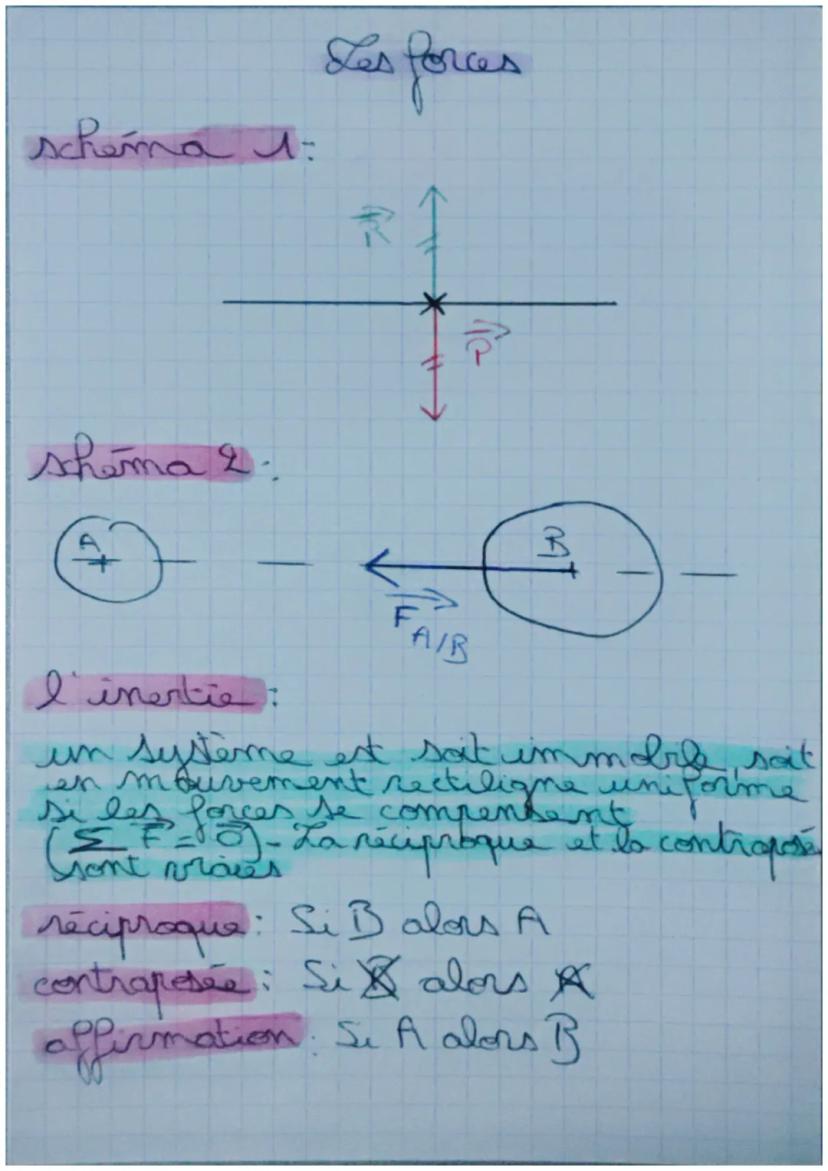 Les forces
schéma 1:
R
P
shéma 2:
A
B
F A/B
l'inertie:
un système est soit immobile, soit
en mouvement rectiligne uniforme
si les forces se compensent
(Σ F = 0). La réciproque et la contraposée
sont vraies
réciproque: Si B alors A
contraposée: Si B alors A
affirmation: Si A alors B